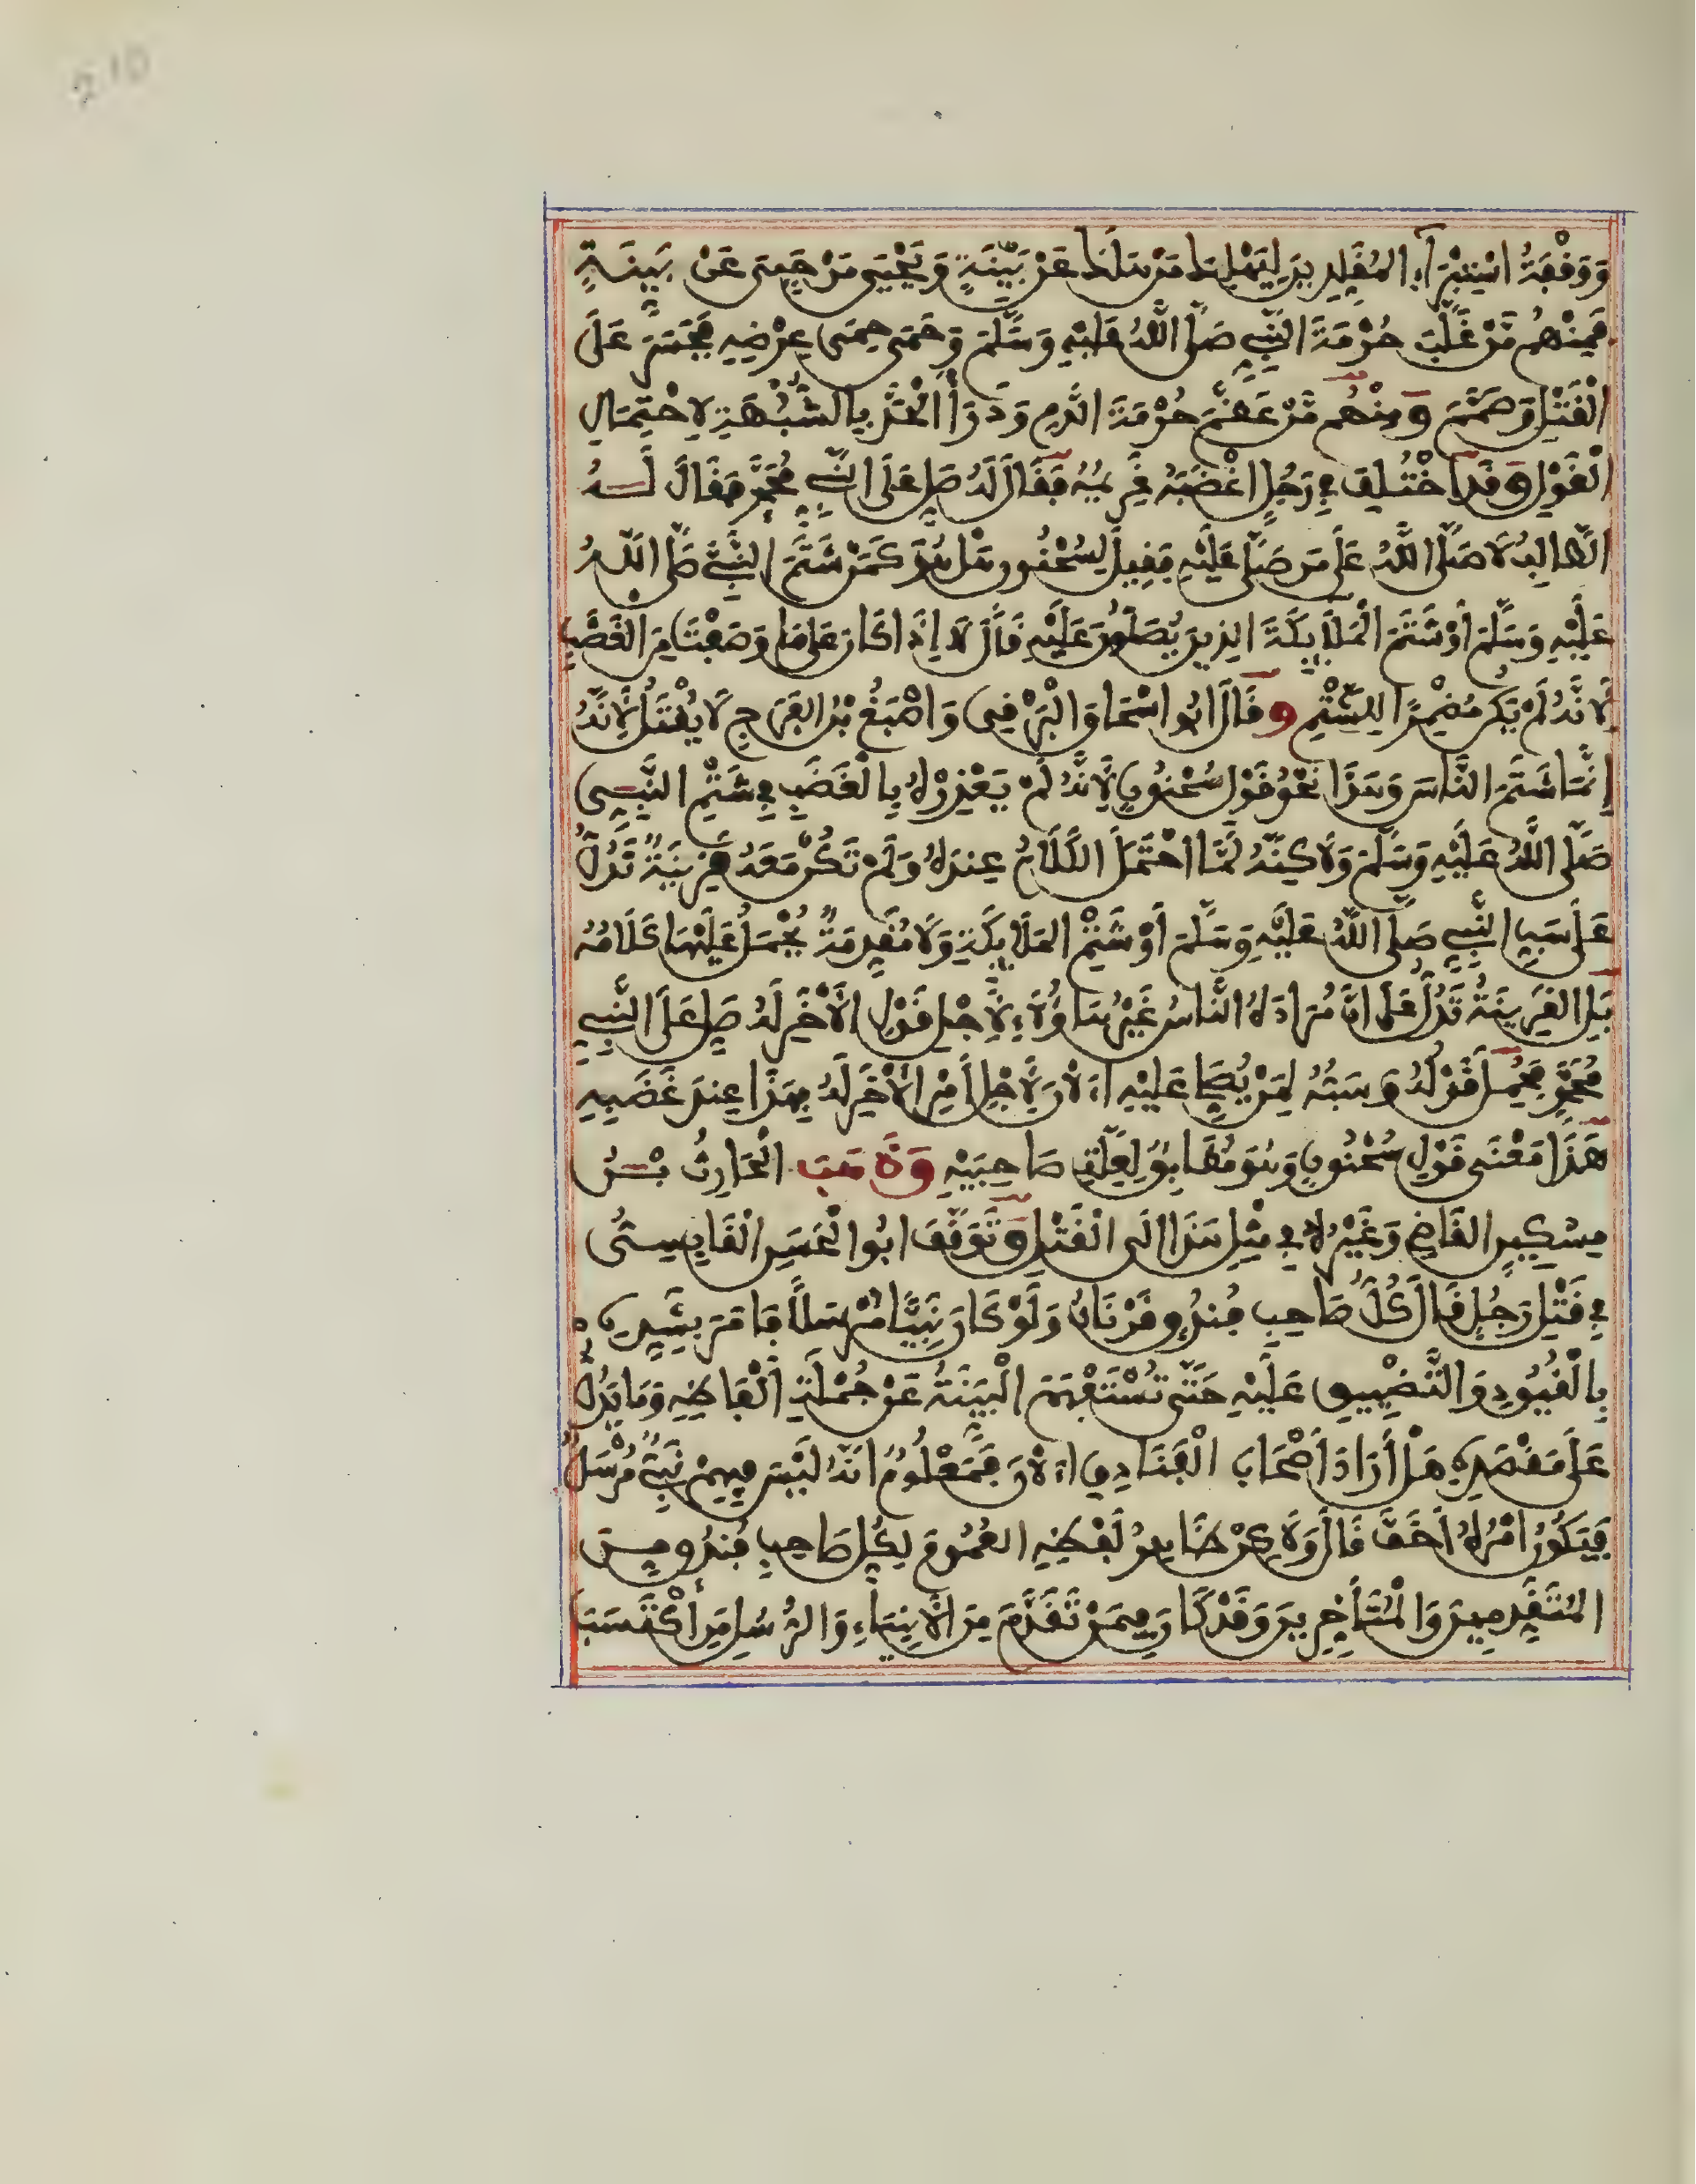 210
وَوَقْفَةُ اسْتِبْرَاءِ الْمُقَلِّدِينَ لِيَهْلِكَ مَنْ هَلَكَ عَنْ بَيِّنَةٍ وَيَحْيَى مَنْ حَيِيَ عَنْ بَيِّنَةٍ
فَمِنْهُم مَّنْ غَلَّبَ حُرْمَةَ النَّبِيِّ صَلَّى اللَّهُ عَلَيْهِ وَسَلَّمَ وَحَمَى حِمَى عِرْضِهِ فَجَسَرَ عَلَى
الْقَتْلِ وَصَمَّمَ وَمِنْهُم مَّنْ عَظَّمَ حُرْمَةَ الدَّمِ وَدَرَأَ الْحَدَّ بِالشُّبْهَةِ لِاحْتِمَالِ
الْقَوْلِ وَقَدِ اخْتُلِفَ فِي رَجُلٍ اغْضَبَهُ غَرِيمُهُ فَقَالَ لَهُ صَلِّ عَلَى النَّبِيِّ مُحَمَّدٍ فَقَالَ لَهُ
الطَّالِبُ لَا صَلَّى اللَّهُ عَلَى مَن صَلَّى عَلَيْهِ فَقِيلَ لِسُحْنُونٍ هَلْ هُوَ كَمَنْ شَتَمَ النَّبِيَّ صَلَّى اللَّهُ
عَلَيْهِ وَسَلَّمَ أَوْ شَتَمَ الْمَلَائِكَةَ الذِينَ يُصَلُّونَ عَلَيْهِ قَالَ لَا إِذَا كَانَ عَلَى مَا وَصَفْتَ مِنَ الْغَضَبِ
لِأَنَّهُ لَمْ يَكُن مُضْمِرًا لِلشَّتْمِ وَقَالَ ابُو اسْحَاقَ الْبَرْقِي وَاصْبَغُ بْنُ الْفَرَجِ لَا يُقْتَلُ لِأَنَّهُ
إِنَّمَا شَتَمَ النَّاسَ وَهَذَا نَحْوُ قَوْلِ سُحْنُونٍ لِأَنَّهُ لَمْ يَعْذِرْهُ بِالْغَضَبِ فِي شَتْمِ النَّبِي
صَلَّى اللَّهُ عَلَيْهِ وَسَلَّمَ وَلَاكِنَّهُ لَمَّا احْتَمَلَ الْكَلَامُ عِندَهُ وَلَمْ تَكُنْ مَعَهُ قَرِينَةٌ تَدُلُّ
عَلَى سَبِّ النَّبِيِّ صَلَّى اللَّهُ عَلَيْهِ وَسَلَّمَ أَوْ شَتْمِ الْمَلَائِكَةِ وَلَا مُقَدِّمَةٌ يُحْمَلُ عَلَيْهَا كَلَامُهُ
بَلِ الْقَرِينَةُ تَدُلُّ عَلَى أَنَّ مُرَادَهُ النَّاسُ غَيْرُ هَاؤُلَاءِ لِأَجْلِ قَوْلِ الْأَخَرِ لَهُ صَلِّ عَلَى النَّبِيِّ
مُحَمَّدٍ فَحُمِلَ قَوْلُهُ وَسَبُّهُ لِمَنْ يُصَلِّي عَلَيْهِ الْآنَ لِأَجْلِ أَمْرِ الْأَخَرِ لَهُ بِهَذَا عِندَ غَضَبِهِ
هَذَا مَعْنَى قَوْلِ سُحْنُونٍ وَهُوَ مُطَابِقٌ لِعِلَّةِ صَاحِبَيْهِ وَذَهَبَ الْحَارِثُ بْنُ
مِسْكِينٍ الْقَاضِي وَغَيْرُهُ فِي مِثْلِ هَذَا الَى الْقَتْلِ وَتَوَقَّفَ ابُوا الْحَسَنِ الْقَابِسِيُّ
فِي قَتْلِ رَجُلٍ قَالَ كُلُّ صَاحِبِ فُندُقٍ قَرْنَانٌ وَلَوْ كَانَ نَبِيًّا مُرْسَلًا فَامَرَ بِشَدِّهِ
بِالْقُيُودِ وَالتَّضْيِيقِ عَلَيْهِ حَتَّى تُسْتَفْهَمَ الْبَيِّنَةُ عَنْ جُمْلَةِ أَلْفَاظِهِ وَمَا يَدُلُّ
عَلَى مَقْصَدِهِ هَلْ أَرَادَ أَصْحَابَ الْفَنَادِقِ الْآنَ فَمَعْلُومٌ انَّهُ لَيْسَ فِيهِمْ نَبِيٌّ مُرْسَلٌ
فَيَكُونُ امْرُهُ أَخَفَّ قَالَ وَلَاكِنْ ظَاهِرُ لَفْظِهِ الْعُمُومُ لِكُلِّ صَاحِبِ فُندُقٍ مِنَ
الْمُتَقَدِّمِينَ وَالْمُتَأَخِّرِينَ وَقَدْ كَانَ فِيمَنْ تَقَدَّمَ مِنَ الْأَنْبِيَاءِ وَالرُّسُلِ مَنِ أكْتَسَبَ